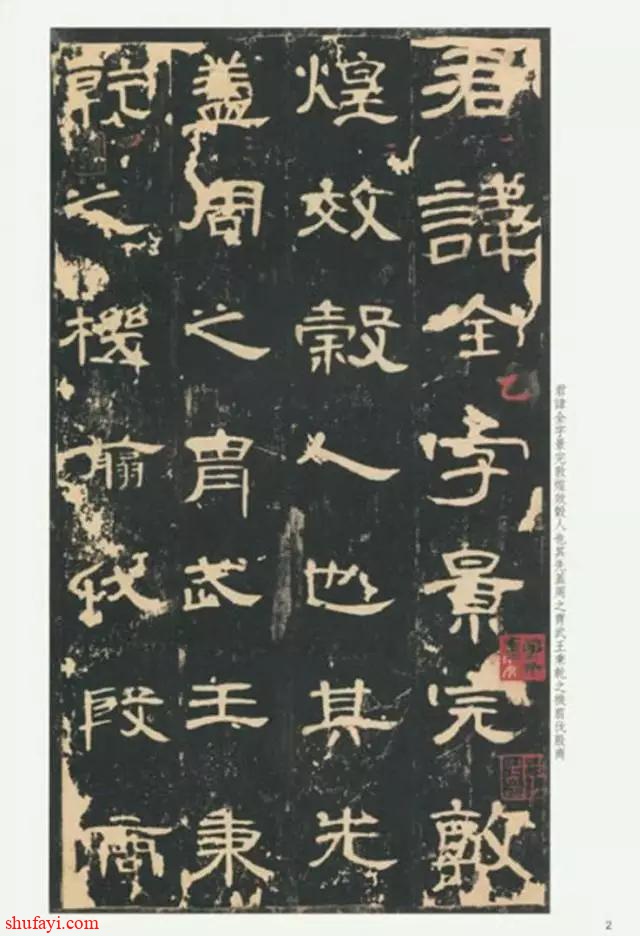 君諱全字景完敦
煌效穀人也其先
蓋周之胄武王秉
乾之機翦伐殷商
君諱全字景完敦煌效穀人也其先蓋周之胄武王秉乾之機翦伐殷商
2
shufayi.com